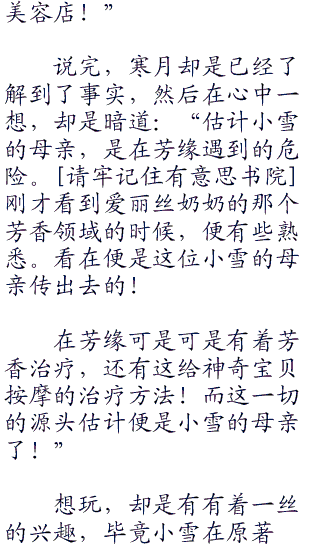 美容店！”
说完，寒月却是已经了
解到了事实，然后在心中一
想，却是暗道：“估计小雪
的母亲，是在芳缘遇到的危
险。[请牢记住有意思书院]
刚才看到爱丽丝奶奶的那个
芳香领域的时候，便有些熟
悉。看在便是这位小雪的母
亲传出去的！
在芳缘可是可是有着芳
香治疗，还有这给神奇宝贝
按摩的治疗方法！而这一切
的源头估计便是小雪的母亲
了！”
想玩，却是有有着一丝
的兴趣，毕竟小雪在原著